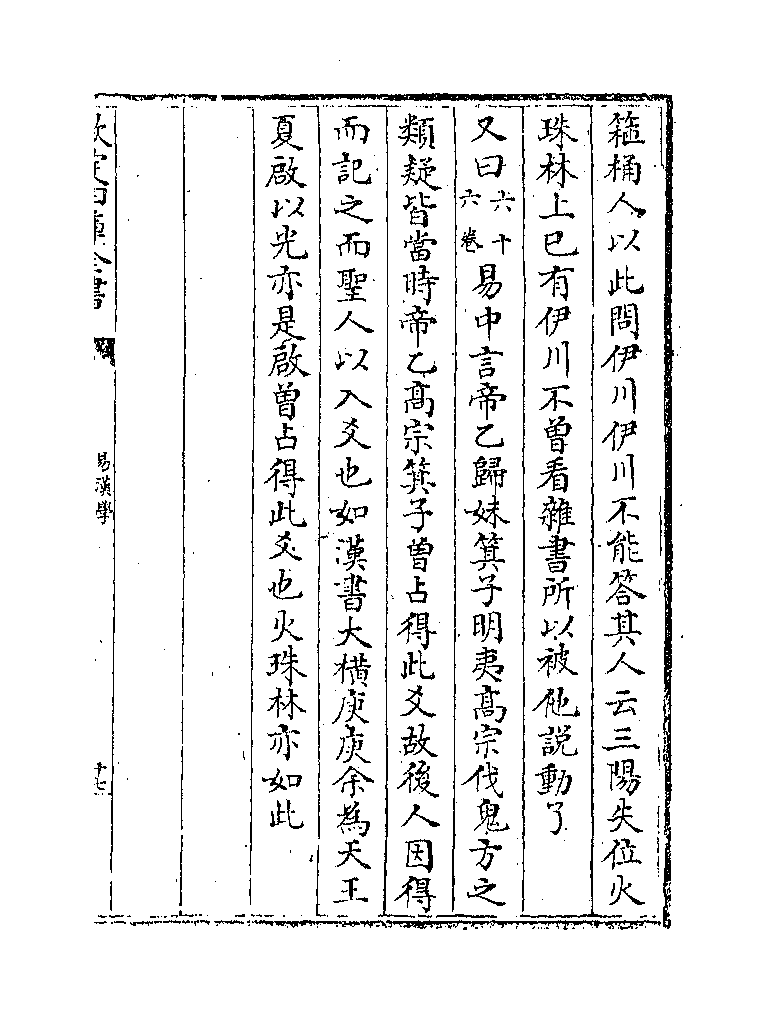 箍桶人以此問伊川伊川不能答其人云三陽失位火
珠林上已有伊川不曾看雜書所以被他説動了
又曰六十六卷易中言帝乙歸妹箕子明夷髙宗伐鬼方之
類疑皆當時帝乙髙宗箕子曾占得此爻故後人因得
而記之而聖人以入爻也如漢書大橫庚庚余為天王
夏啟以光亦是啟曾占得此爻也火珠林亦如此
欽定四庫全書
易漢學
十七